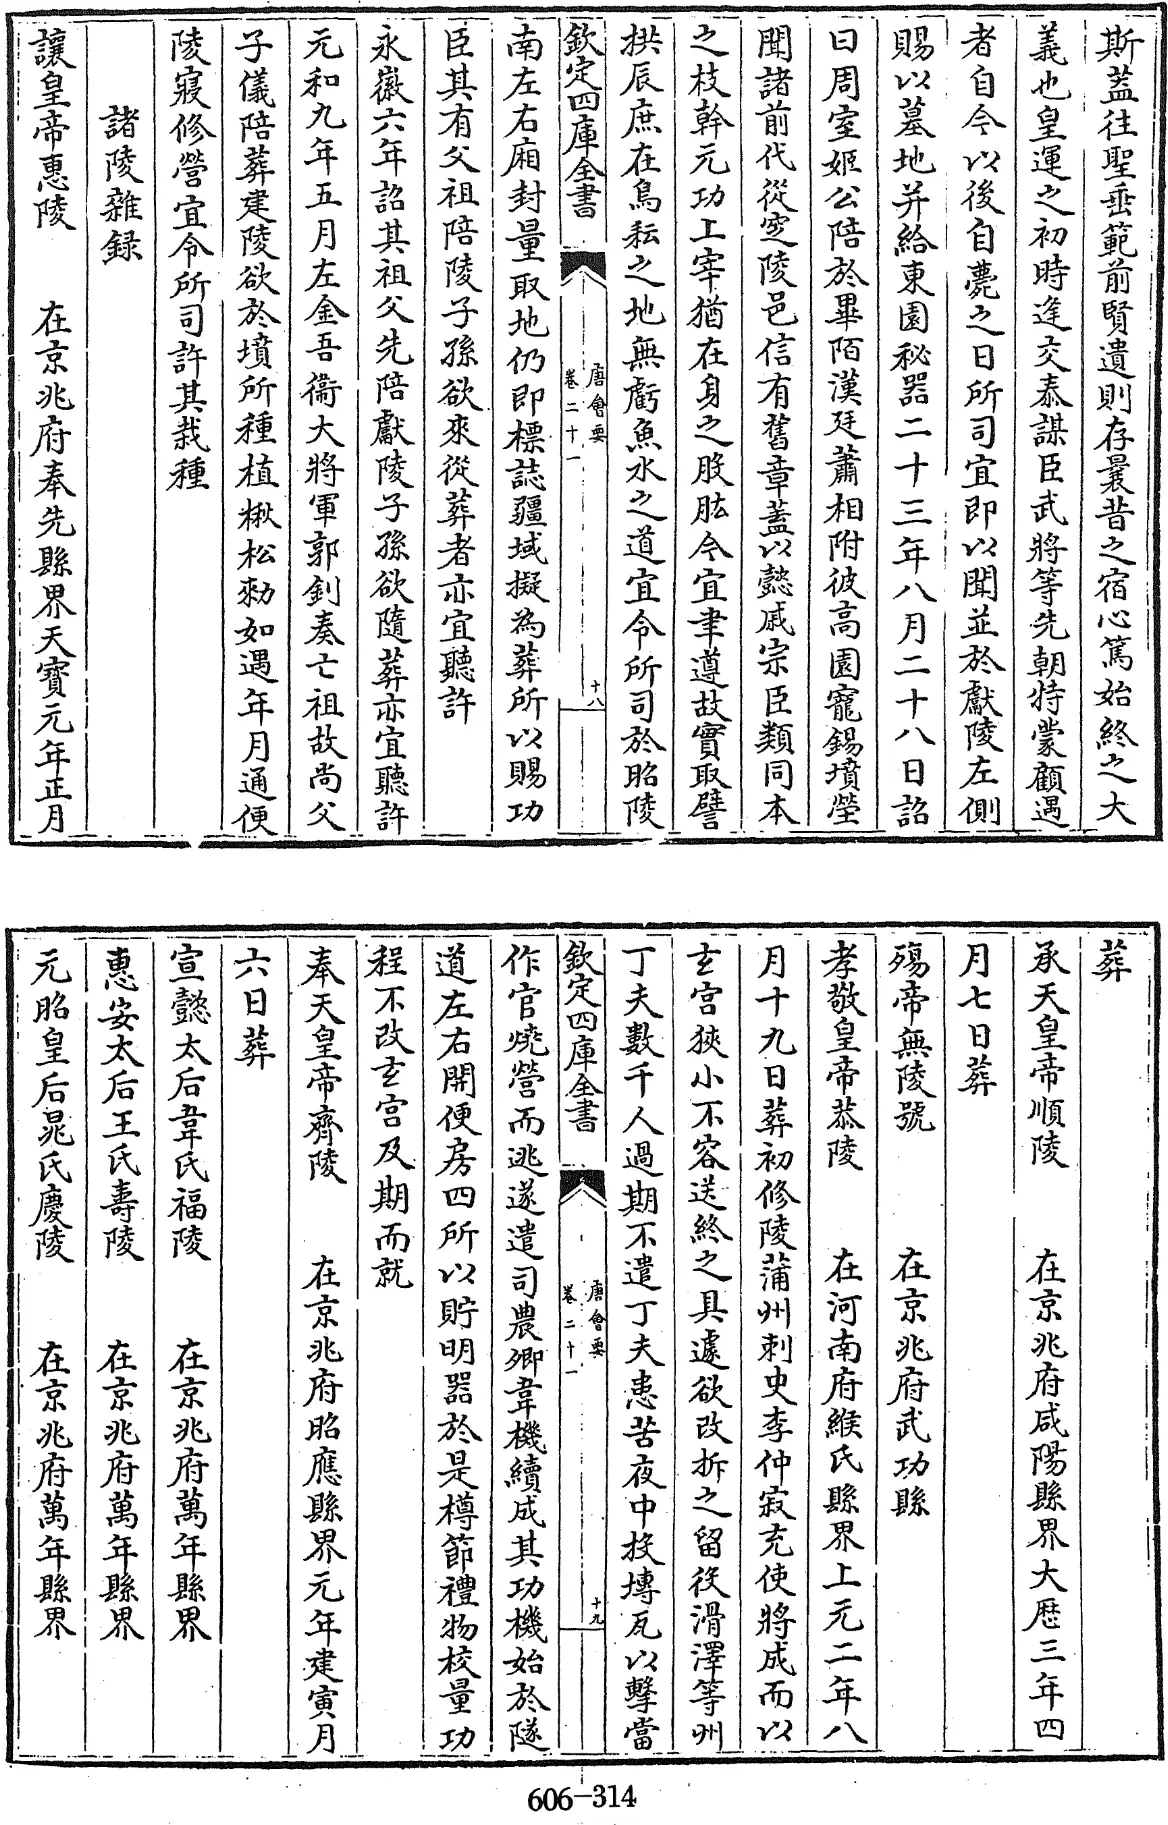 斯葢往聖垂範前賢遺則存曩昔之宿心篤始終之大
義也皇運之初時逢交泰謀臣武將等先朝特蒙顧遇
者自今以後自薨之日所司宜即以聞並於獻陵左側
賜以墓地并給東園秘器二十三年八月二十八日詔
曰周室姬公陪於畢陌漢廷蕭相附彼高園寵錫墳塋
聞諸前代從窆陵邑信有舊章蓋以懿戚宗臣類同本
之枝幹元功上宰猶在身之股肱今宜聿遵故實取譬
拱辰庶在鳥耘之地無虧魚水之道宜令所司於昭陵
欽定四庫全書
唐會要
卷二十一
十八
南左右廂封量取地仍即標誌疆域擬為葬所以賜功
臣其有父祖陪陵子孫欲來從葬者亦宜聽許
永徽六年詔其祖父先陪獻陵子孫欲隨葬亦宜聽許
元和九年五月左金吾衞大將軍郭釗奏亡祖故尚父
子儀陪葬建陵欲於墳所種植楸松勅如遇年月通便
陵寢修營宜令所司許其栽種
諸陵雜録
讓皇帝惠陵　在京兆府奉先縣界天寳元年正月
葬
承天皇帝順陵　在京兆府咸陽縣界大厯三年四
月七日葬
殤帝無陵號　在京兆府武功縣
孝敬皇帝恭陵　在河南府緱氏縣界上元二年八
月十九日葬初修陵蒲州刺史李仲寂充使將成而以
玄宫狹小不容送終之具遽欲改拆之留役滑澤等州
丁夫數千人過期不遣丁夫恚苦夜中投塼瓦以擊當
欽定四庫全書
唐會要
卷二十一
十九
作官燒營而逃遂遣司農卿韋機續成其功機始於隧
道左右開便房四所以貯明器於是樽節禮物校量功
程不改玄宫及期而就
奉天皇帝齊陵　在京兆府昭應縣界元年建寅月
六日葬
宣懿太后韋氏福陵　在京兆府萬年縣界
惠安太后王氏壽陵　在京兆府萬年縣界
元昭皇后晁氏慶陵　在京兆府萬年縣界
606-314